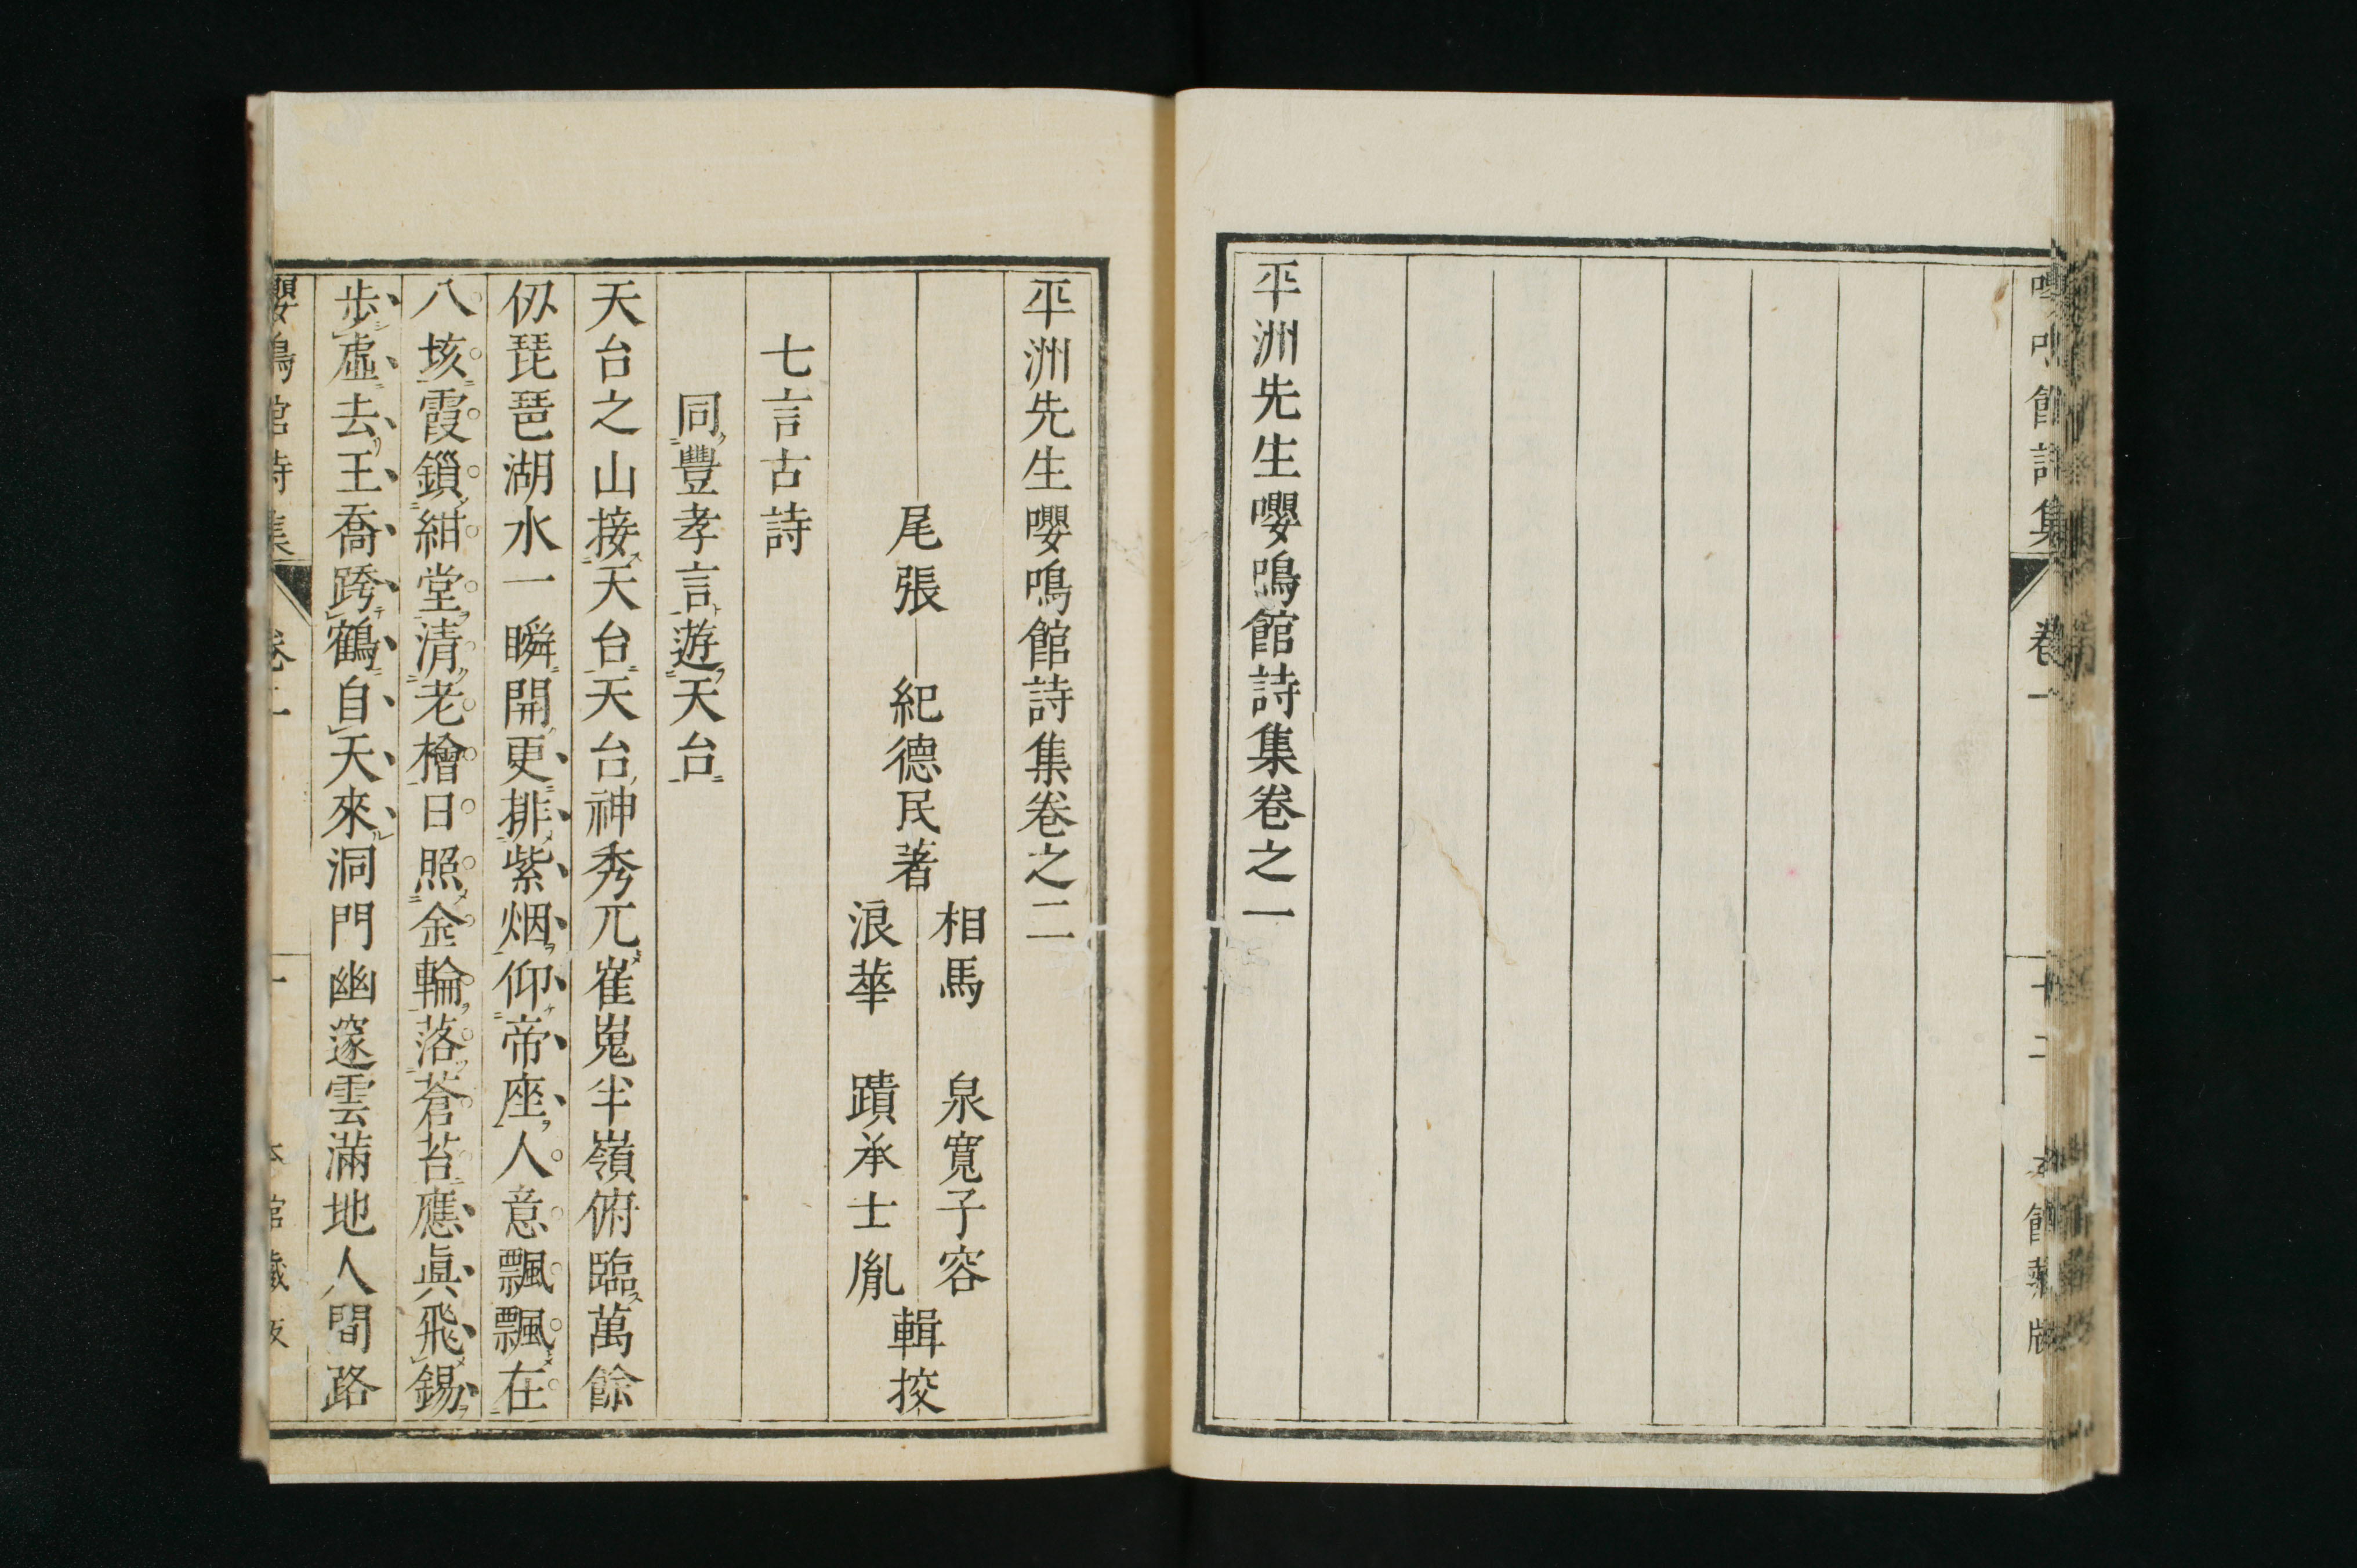 嚶鳴館詩集 卷一 十二 本館藏版
平洲先生嚶鳴館詩集卷之一
平洲先生嚶鳴館詩集卷之二
尾張 紀德民著
相馬 泉寬子容
浪華 蹟承士胤
輯挍
七言古詩
同豐孝言遊天台
天台之山接天台天台神秀兀崔嵬半嶺俯臨萬餘
仭琵琶湖水一瞬開更排紫烟仰帝座人意飄飄在
八垓霞鎖紺堂清老檜日照金輪落蒼苔應眞飛錫
步虛去王喬跨鶴自天來洞門幽邃雲滿地人間路
嚶鳴館詩集 卷二 一 本館藏版